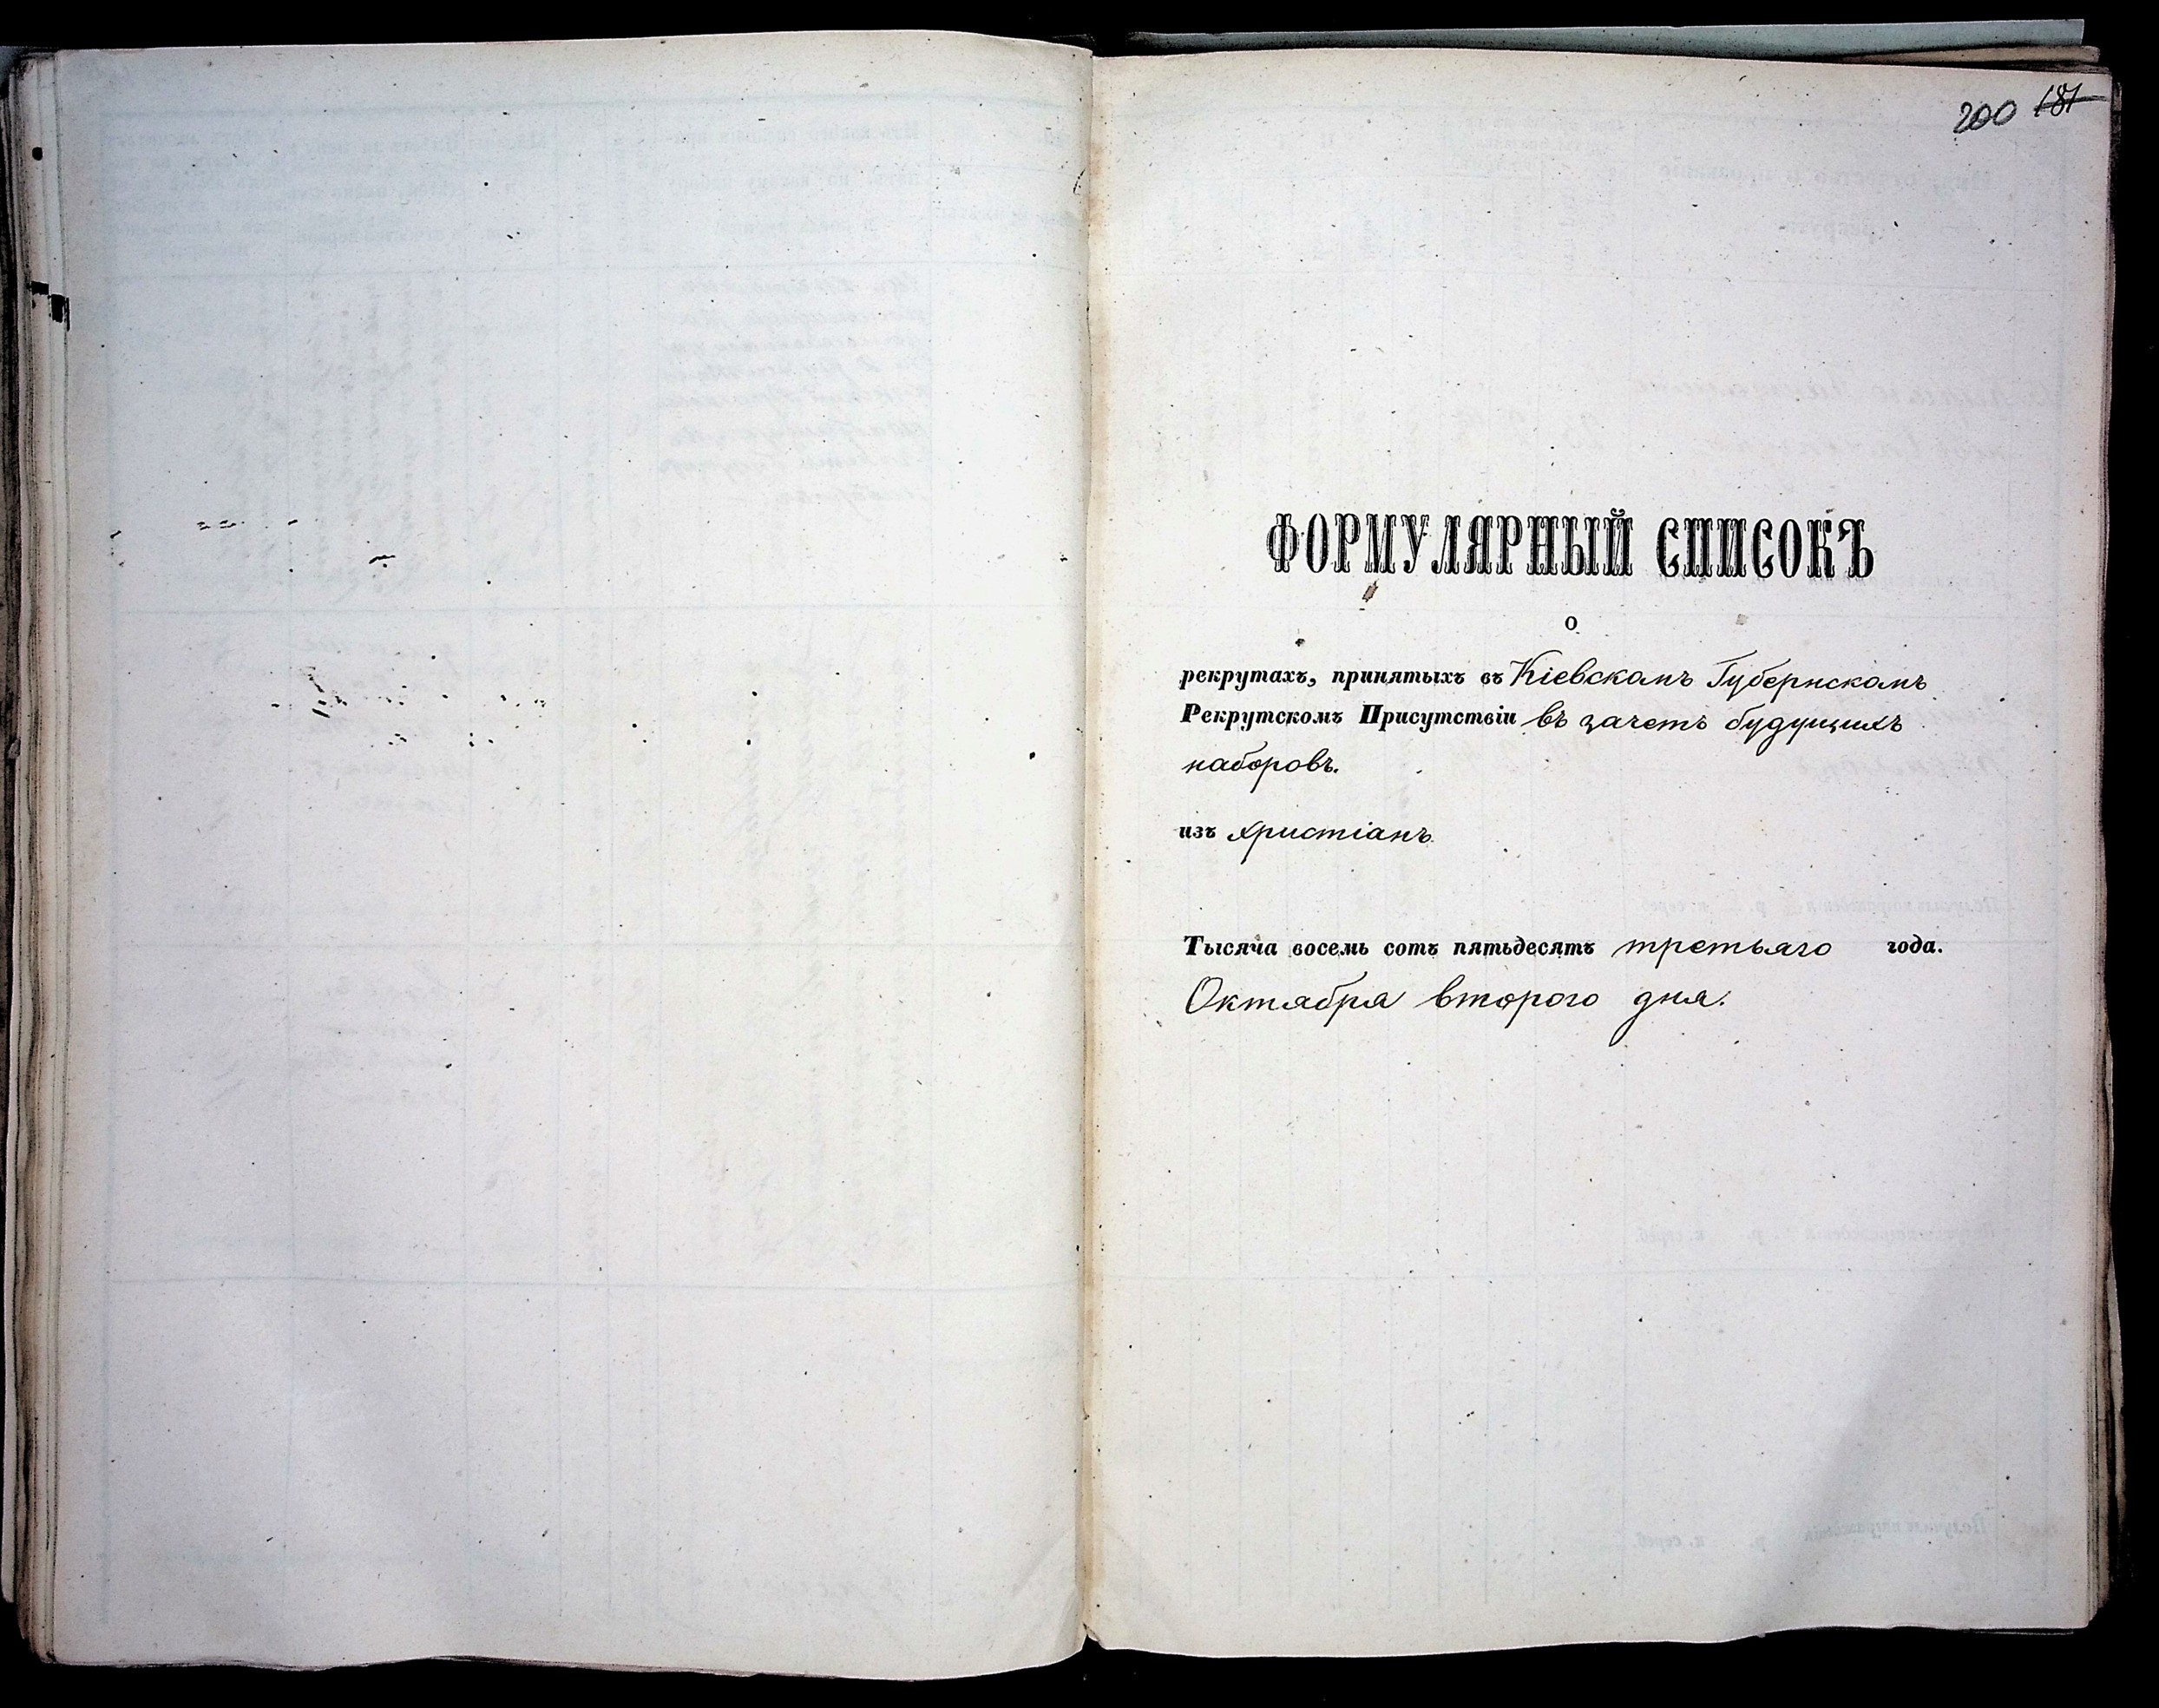 200 181
ФОРМУЛЯРНЫЙ СПИСОКЪ
о
рекрутахъ, принятыхъ въ Кіевскомъ Губернскомъ
Рекрутскомъ Присутствіи въ зачетъ будущихъ
наборовъ.
изъ христіанъ
Тысяча восемь сотъ пятьдесятъ третьяго года.
Октября второго дня.